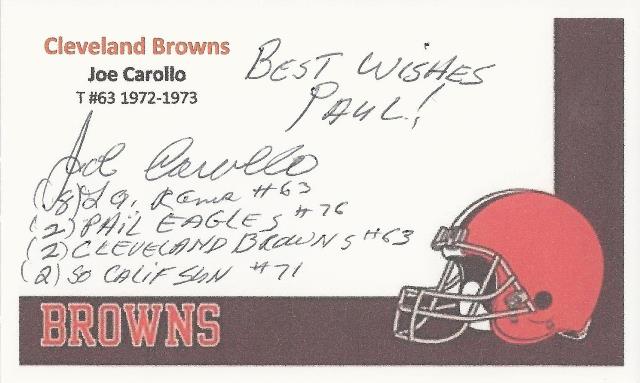 Cleveland Browns
Joe Carollo
T #63 1972-1973
BEST WISHES
PAUL!
Joe Carollo
(8) LA. Rams #63
(2) PHIL EAGLES #76
(2) CLEVELAND BROWNS #63
(2) SO CALIF SUN #71
BROWNS